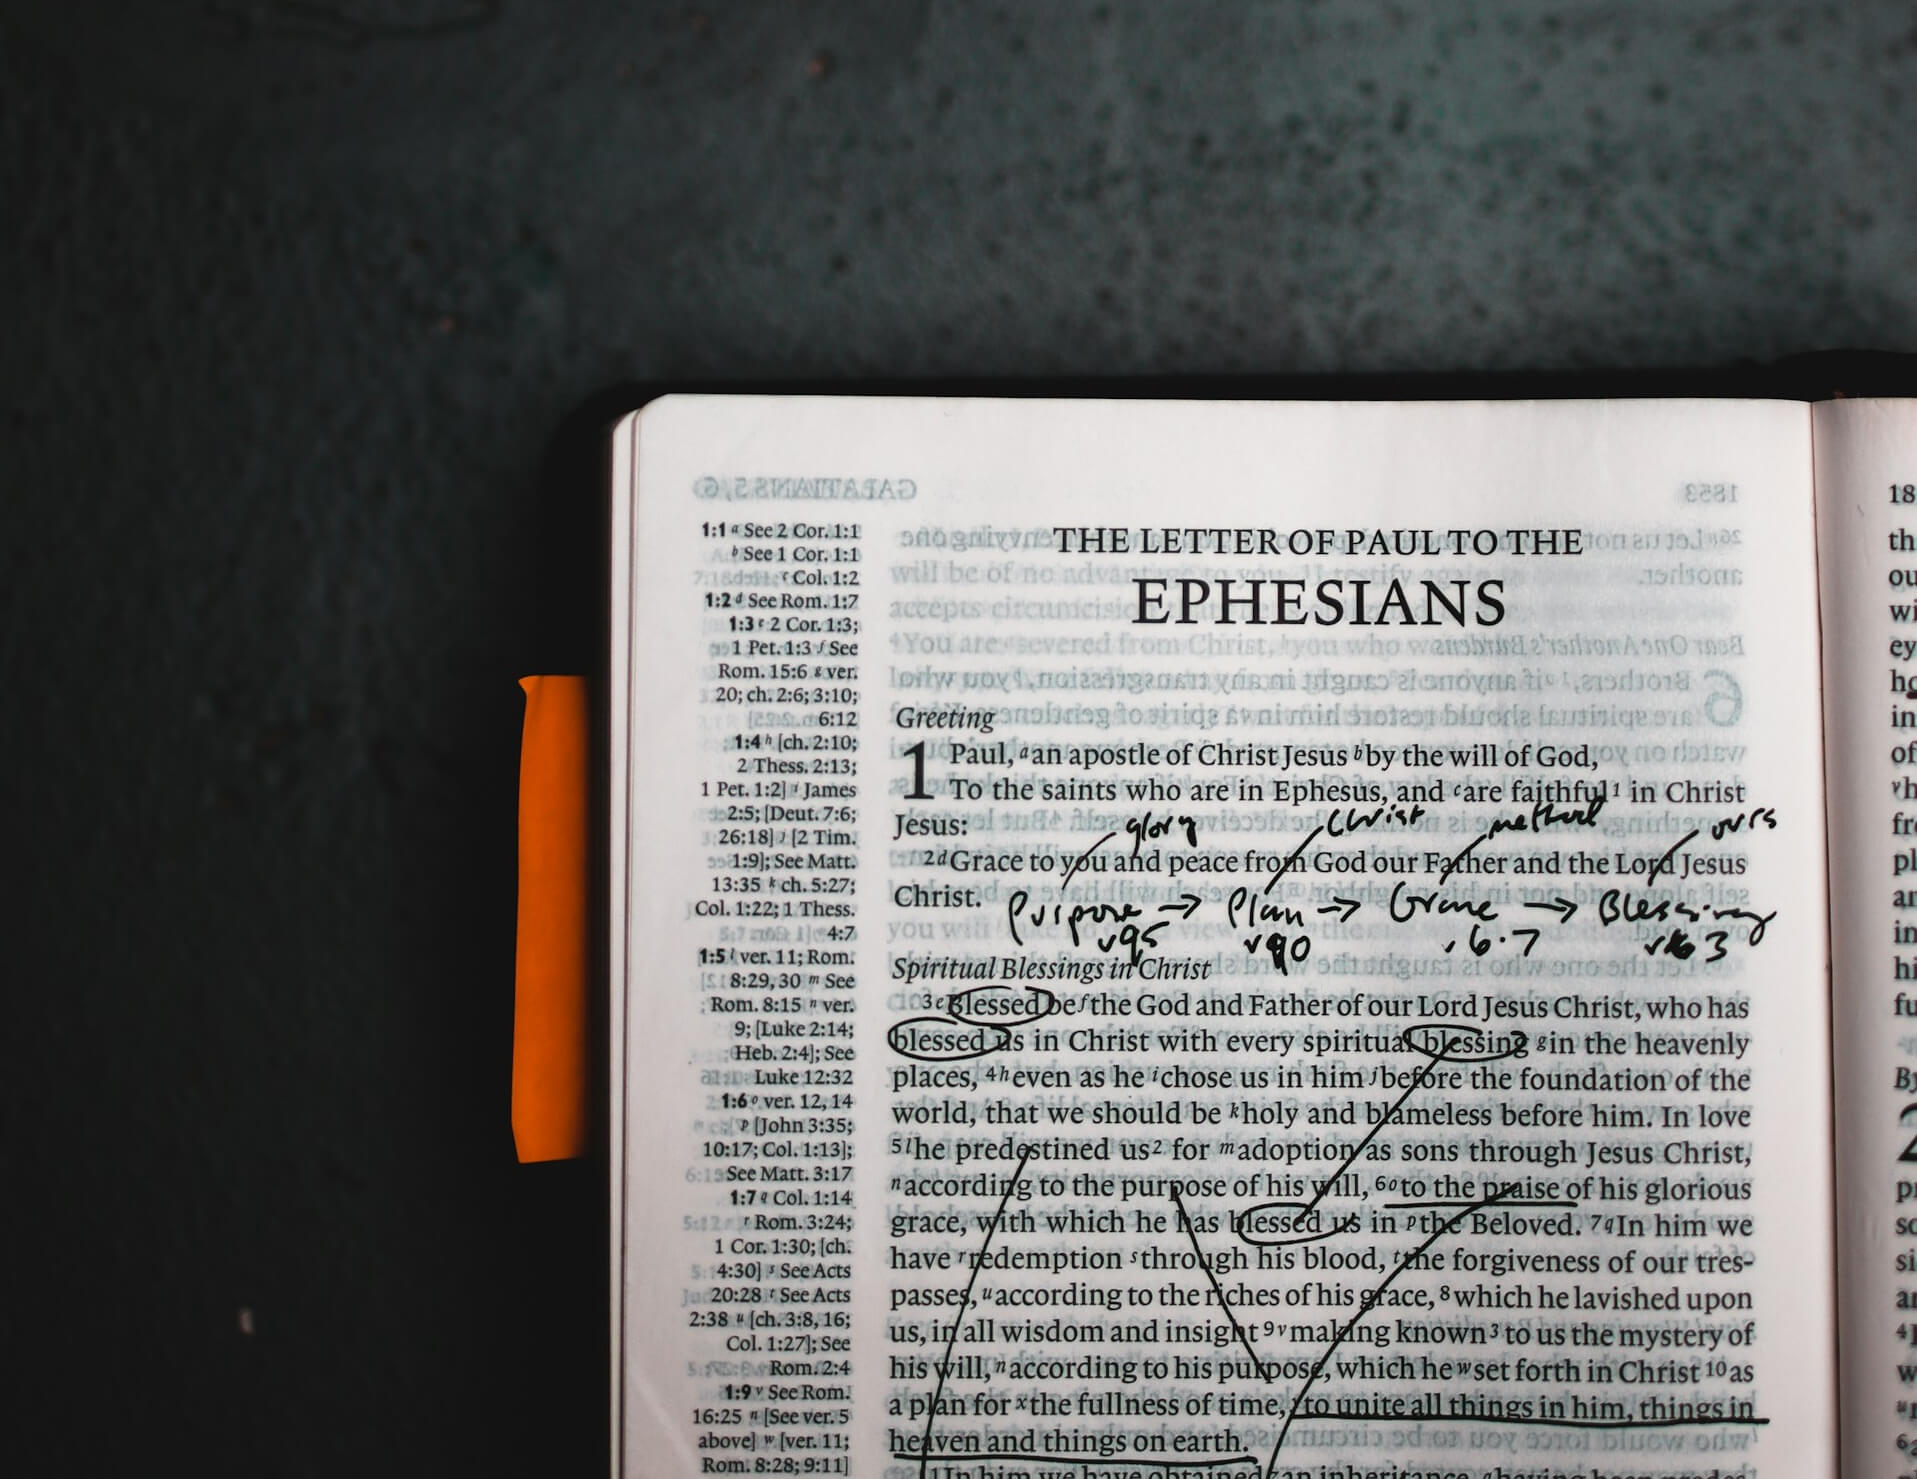 1:1 a See 2 Cor. 1:1
b See 1 Cor. 1:1
c Col. 1:2
1:2 d See Rom. 1:7
1:3 e 2 Cor. 1:3;
1 Pet. 1:3 f See
Rom. 15:6 g ver.
20; ch. 2:6; 3:10;
6:12
1:4 h [ch. 2:10;
2 Thess. 2:13;
1 Pet. 1:2] i James
2:5; [Deut. 7:6;
26:18] j [2 Tim.
1:9]; See Matt.
13:35 k ch. 5:27;
Col. 1:22; 1 Thess.
4:7
1:5 l ver. 11; Rom.
8:29, 30 m See
Rom. 8:15 n ver.
9; [Luke 2:14;
Heb. 2:4]; See
Luke 12:32
1:6 o ver. 12, 14
p [John 3:35;
10:17; Col. 1:13];
See Matt. 3:17
1:7 q Col. 1:14
r Rom. 3:24;
1 Cor. 1:30; [ch.
4:30] s See Acts
20:28 t See Acts
2:38 u [ch. 3:8, 16;
Col. 1:27]; See
Rom. 2:4
1:9 v See Rom.
16:25 n [See ver. 5
above] w [ver. 11;
Rom. 8:28; 9:11]
THE LETTER OF PAUL TO THE
EPHESIANS
Greeting
1 Paul, a an apostle of Christ Jesus b by the will of God,
To the saints who are in Ephesus, and c are faithful 1 in Christ
Jesus:
glory Christ method ours
2 d Grace to you and peace from God our Father and the Lord Jesus
Christ.
Purpose → Plan → Grace → Blessing
v 6·7 3
Spiritual Blessings in Christ
3 e Blessed be f the God and Father of our Lord Jesus Christ, who has
blessed us in Christ with every spiritual blessing g in the heavenly
places, 4 h even as he i chose us in him j before the foundation of the
world, that we should be k holy and blameless before him. In love
5 l he predestined us 2 for m adoption as sons through Jesus Christ,
n according to the purpose of his will, 6 o to the praise of his glorious
grace, with which he has blessed us in p the Beloved. 7 q In him we
have r redemption s through his blood, t the forgiveness of our tres-
passes, u according to the riches of his grace, 8 which he lavished upon
us, in all wisdom and insight 9 v making known 3 to us the mystery of
his will, n according to his purpose, which he w set forth in Christ 10 as
a plan for x the fullness of time, y to unite all things in him, things in
heaven and things on earth.
11 In him we have obtained z an inheritance, a having been